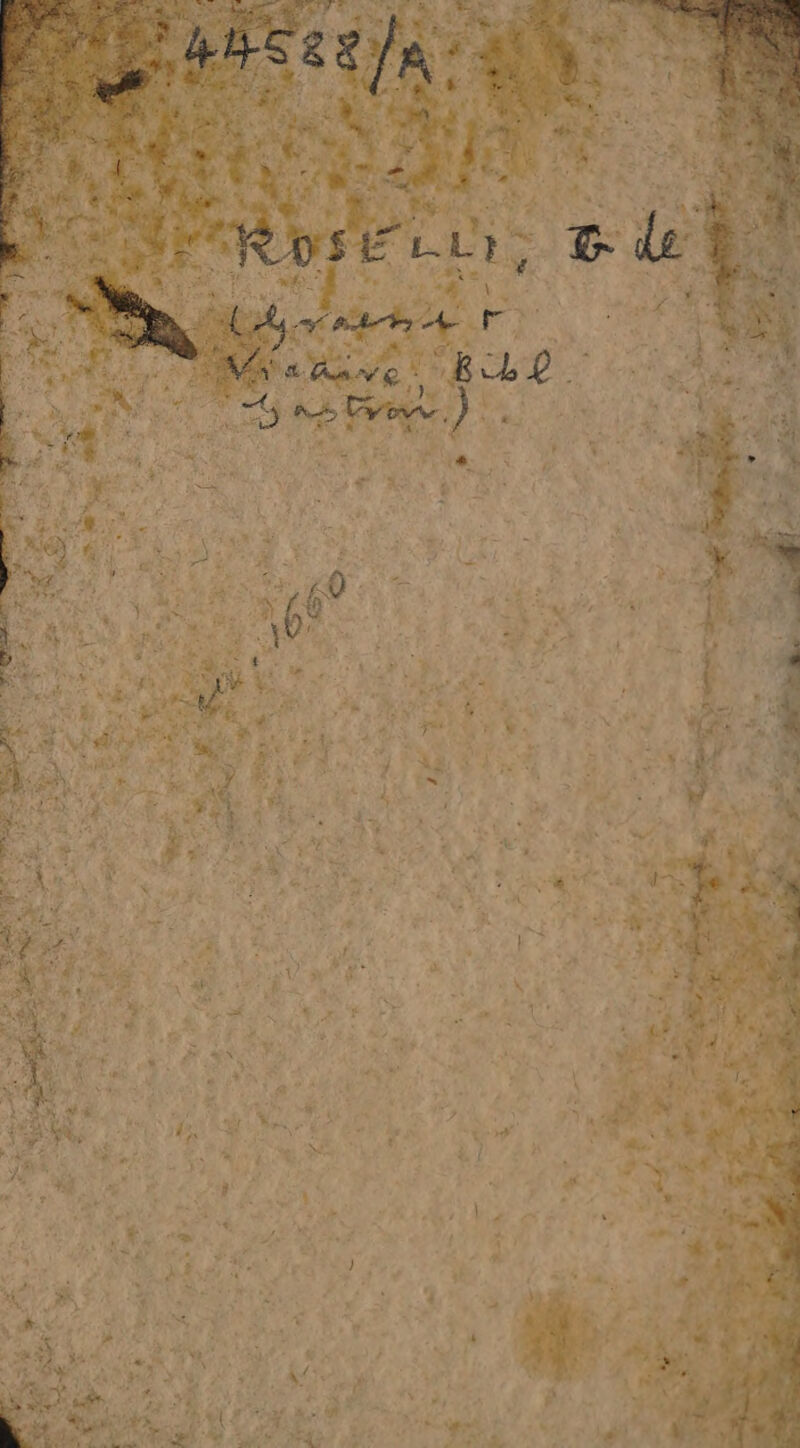 44588/A
ROSELLI, G de
Vicaire, Bibl.
Gastron.)
1660